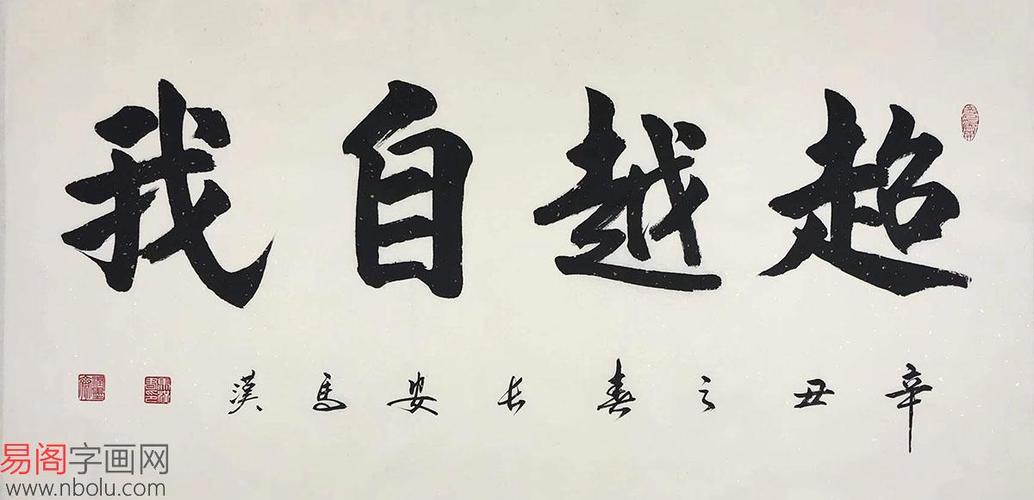 超越自我
辛丑之春长安馬漢
易阁字画网
www.nbolu.com